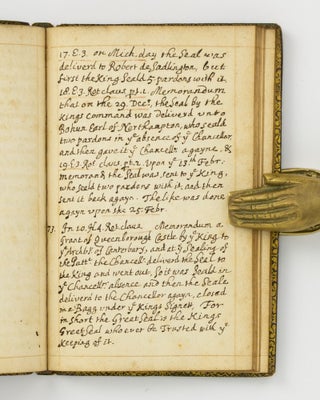 17. E.3. on Mich. day the Seal was
deliverd to Robert de Sadlington, but
first the King Seald 5 pardons with it
18. E3 Rot claus. pt. 2. Memorandum
that on the 29. Decr. the Seal by the
Kings command was deliverd unto
Bohun Earl of Northampton, who seald
two pardons in ye absence of ye Chancellor
and then gave it ye Chancellor agayne. &
19. E3 Rot claus. pt. 2. Upon ye 15th Febr:
memorand the Seal was sent to ye King,
who seald two pardens with it, and then
sent it back agayn. The like was done
agayn upon the 25. Febr.
73. In 10. H4. Rot. claus. Memorandum a
Grant of Queenborough Castle by ye King to
ye Archbp of Canterbury, and at ye Sealing of
the Patt the Chancellr. deliverd the Seal to
the King and went out, So it was Seald in
ye Chancellrs absence and then the Seale
deliverd to the Chancellor agayn, closed
in a Bagg under ye Kings Signett. For
in short the Great Seal is the Kings
Great Seal who ever be Trusted with ye
keeping of it.